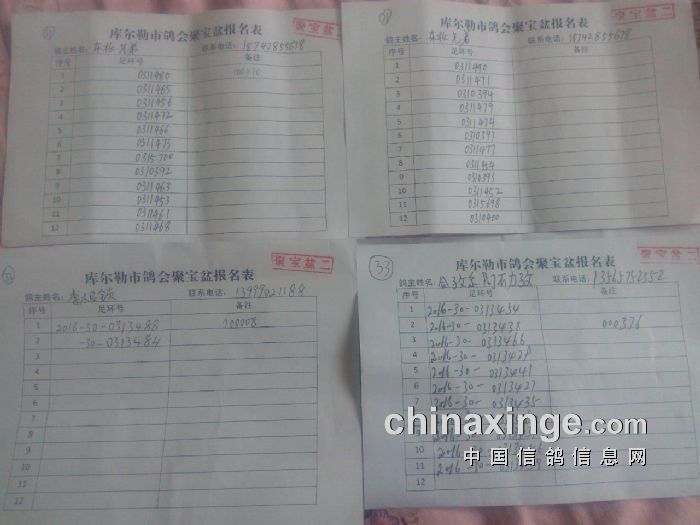 库尔勒市鸽会聚宝盆报名表
聚宝盆二
鸽主姓名: 东北兄弟 联系电话: 18742855678
序号 足环号 备注
1 0311480
2 0311465
3 0311456
4 0311472
5 0311466
6 0311473
7 0315700
8 0310392
9 0311463
10 0311453
11 0311461
12 0311468
库尔勒市鸽会聚宝盆报名表
聚宝盆二
鸽主姓名: 东北兄弟 联系电话: 18742855678
序号 足环号 备注
1 0311490
2 0311471
3 0310394
4 0311479
5 0311474
6 0310397
7 0311477
8
9 0310393
10 0311452
11 0315698
12 0310400
库尔勒市鸽会聚宝盆报名表
聚宝盆二
鸽主姓名: 联系电话: 13999021188
序号 足环号 备注
1 2016-30-0313488 100008
2 -30-0313484
3
4
5
6
7
8
9
10
11
12
33
库尔勒市鸽会聚宝盆报名表
聚宝盆二
鸽主姓名: 联系电话:
序号 足环号 备注
1 2016-30-0313454
2 2016-30-0313438 000376
3 2016-30-0313466
4 2016-30-0313429
5 2016-30-0313441
6 2016-30-0313427
7 2016-30-0313435
10 2016-30-
11 2016-30-
12
chinaxinge.com
中国信鸽信息网